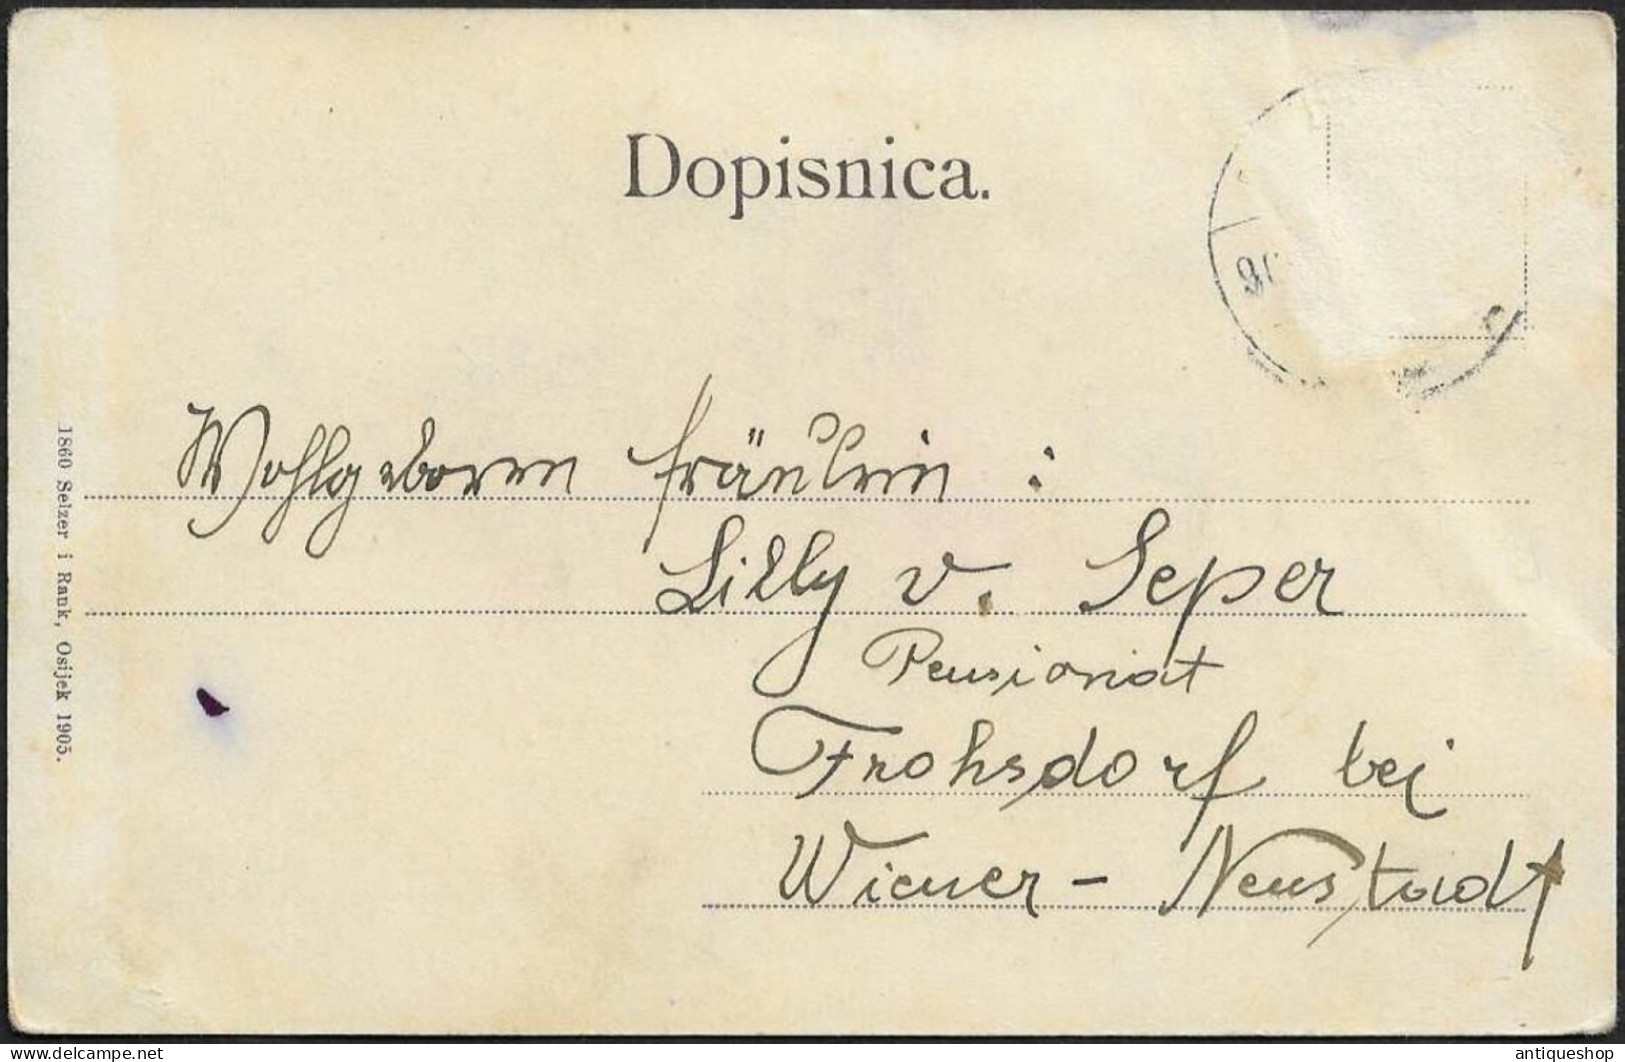 Dopisnica.
Wohlgeboren fräulein :
Lilly v. Seper
Pensionat
Frohsdorf bei
Wiener - Neustadt
1860 Selzer i Rank, Osijek 1905.
antiqueshop